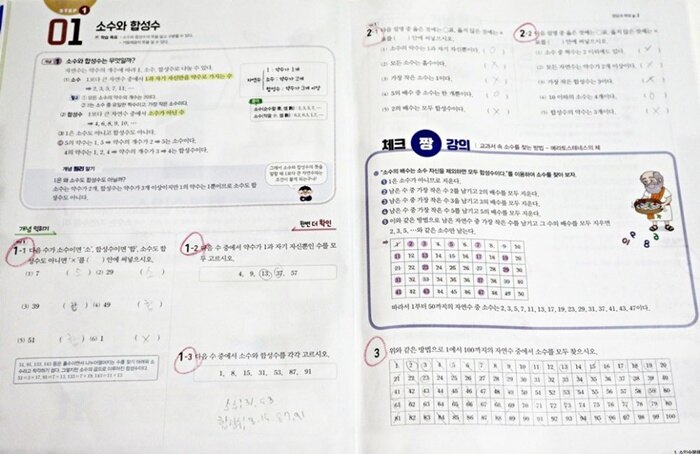 STEP 1
01 소수와 합성수
개념 1 소수와 합성수는 무엇일까?
자연수는 약수의 개수에 따라 1, 소수, 합성수로 나눌 수 있다.
(1) 소수 1보다 큰 자연수 중에서 1과 자기 자신만을 약수로 가지는 수
⇒ 2, 3, 5, 7, 11, …
② 2는 소수 중 유일한 짝수이고, 가장 작은 소수이다.
(2) 합성수 1보다 큰 자연수 중에서 소수가 아닌 수
⇒ 4, 6, 8, 9, 10, …
(3) 1은 소수도 아니고 합성수도 아니다.
5의 약수는 1, 5 ⇒ 약수의 개수가 2 ⇒ 5는 소수이다.
4의 약수는 1, 2, 4 ⇒ 약수의 개수가 3 ⇒ 4는 합성수이다.
자연수
1 : 약수가 1개
소수 : 약수가 2개
합성수 : 약수가 3개 이상
1은 왜 소수도 합성수도 아닐까?
소수는 약수가 2개, 합성수는 약수가 3개 이상이지만 1의 약수는 1뿐이므로 소수도 합
성수도 아니다.
개념 익히기
한번 더 확인
1-1 다음 수가 소수이면 '소', 합성수이면 '합', 소수도 합
성수도 아니면 '×'를 ( ) 안에 써넣으시오.
(1) 7 ( 소 ) (2) 29 ( 소 )
(3) 39 ( 합 ) (4) 49 ( 합 )
(5) 51 ( 합 ) (6) 1 ( × )
1-2 다음 수 중에서 약수가 1과 자기 자신뿐인 수를 모
두 고르시오.
4, 9, 13, 37, 57
1-3 다음 수 중에서 소수와 합성수를 각각 고르시오.
1, 8, 15, 31, 53, 87, 91
소수 31, 53
합성수 8, 15, 87, 91
2-1 다음 설명 중 옳은 것에는 ○표, 옳지 않은 것에는 ×
표를 ( ) 안에 써넣으시오.
(1) 소수의 약수는 1과 자기 자신뿐이다.
(2) 모든 소수는 홀수이다. ( × )
(3) 가장 작은 소수는 1이다. ( × )
(4) 5의 배수 중 소수는 한 개뿐이다. ( ○ )
(5) 2의 배수는 모두 합성수이다. ( × )
2-2 다음 설명 중 옳은 것에는 ○표, 옳지 않은 것에는 ×
표를 ( ) 안에 써넣으시오.
(1) 소수 중 짝수는 2 이외에도 있다. ( × )
(2) 모든 자연수는 약수가 2개 이상이다. ( × )
(3) 가장 작은 합성수는 1이다. ( × )
(4) 10 이하의 소수는 4개이다. ( ○ )
(5) 합성수의 약수는 3개이다. ( × )
체크 짱 강의 교과서 속 소수를 찾는 방법 - 에라토스테네스의 체
'소수의 배수는 소수 자신을 제외하면 모두 합성수이다.'를 이용하여 소수를 찾아 보자.
❶ 1은 소수가 아니므로 지운다.
❷ 남은 수 중 가장 작은 수 2를 남기고 2의 배수를 모두 지운다.
❸ 남은 수 중 가장 작은 수 3을 남기고 3의 배수를 모두 지운다.
❹ 남은 수 중 가장 작은 수 5를 남기고 5의 배수를 모두 지운다.
❺ 이와 같은 방법으로 남은 자연수 중 가장 작은 수를 남기고 그 수의 배수를 모두 지우면
2, 3, 5, …와 같은 소수만 남는다.
1 2 3 4 5 6 7 8 9 10
11 12 13 14 15 16 17 18 19 20
21 22 23 24 25 26 27 28 29 30
31 32 33 34 35 36 37 38 39 40
41 42 43 44 45 46 47 48 49 50
따라서 1부터 50까지의 자연수 중 소수는 2, 3, 5, 7, 11, 13, 17, 19, 23, 29, 31, 37, 41, 43, 47이다.
3 위와 같은 방법으로 1에서 100까지의 자연수 중에서 소수를 모두 찾으시오.
1 2 3 4 5 6 7 8 9 10 11 12 13 14 15 16 17 18 19 20
21 22 23 24 25 26 27 28 29 30 31 32 33 34 35 36 37 38 39 40
41 42 43 44 45 46 47 48 49 50 51 52 53 54 55 56 57 58 59 60
61 62 63 64 65 66 67 68 69 70 71 72 73 74 75 76 77 78 79 80
81 82 83 84 85 86 87 88 89 90 91 92 93 94 95 96 97 98 99 100